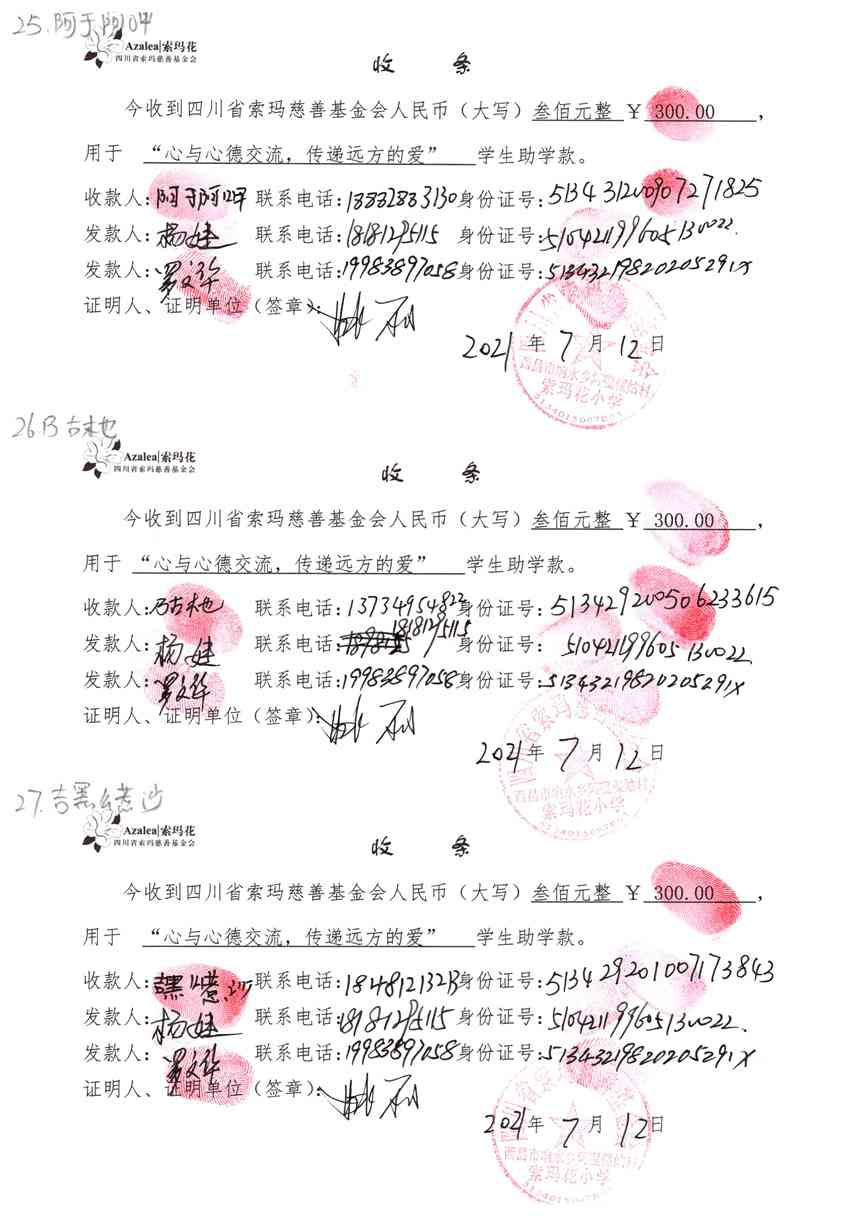 25.阿于阿呷
Azalea|索玛花
四川省索玛慈善基金会
收 条
今收到四川省索玛慈善基金会人民币（大写）叁佰元整 ￥ 300.00 ，
用于 “心与心德交流，传递远方的爱” 学生助学款。
收款人：阿于阿呷 联系电话：18832883130 身份证号：513431200907271825
发款人：杨婕 联系电话：18181295115 身份证号：510421199605130022.
发款人：罗文华 联系电话：19983897058 身份证号：51343219820205291X
证明人、证明单位（签章）：
2021年 7月 12日
索玛花小学
26 古木地
Azalea|索玛花
四川省索玛慈善基金会
收 条
今收到四川省索玛慈善基金会人民币（大写）叁佰元整 ￥ 300.00 ，
用于 “心与心德交流，传递远方的爱” 学生助学款。
收款人： 联系电话：13734954822 身份证号：513429200506233615
发款人：杨婕 联系电话：18181295115 身份证号：510421199605130022
发款人：罗文华 联系电话：19983897058 身份证号：51343219820205291X
证明人、证明单位（签章）：
2021年 7月 12日
索玛花小学
27.吉黑么惹沙
Azalea|索玛花
四川省索玛慈善基金会
收 条
今收到四川省索玛慈善基金会人民币（大写）叁佰元整 ￥ 300.00 ，
用于 “心与心德交流，传递远方的爱” 学生助学款。
收款人： 联系电话： 身份证号：513429201007173843
发款人：杨婕 联系电话：18181295115 身份证号：510421199605130022.
发款人：罗文华 联系电话：19983897058 身份证号：51343219820205291X
证明人、证明单位（签章）：
2021年 7月 12日
索玛花小学